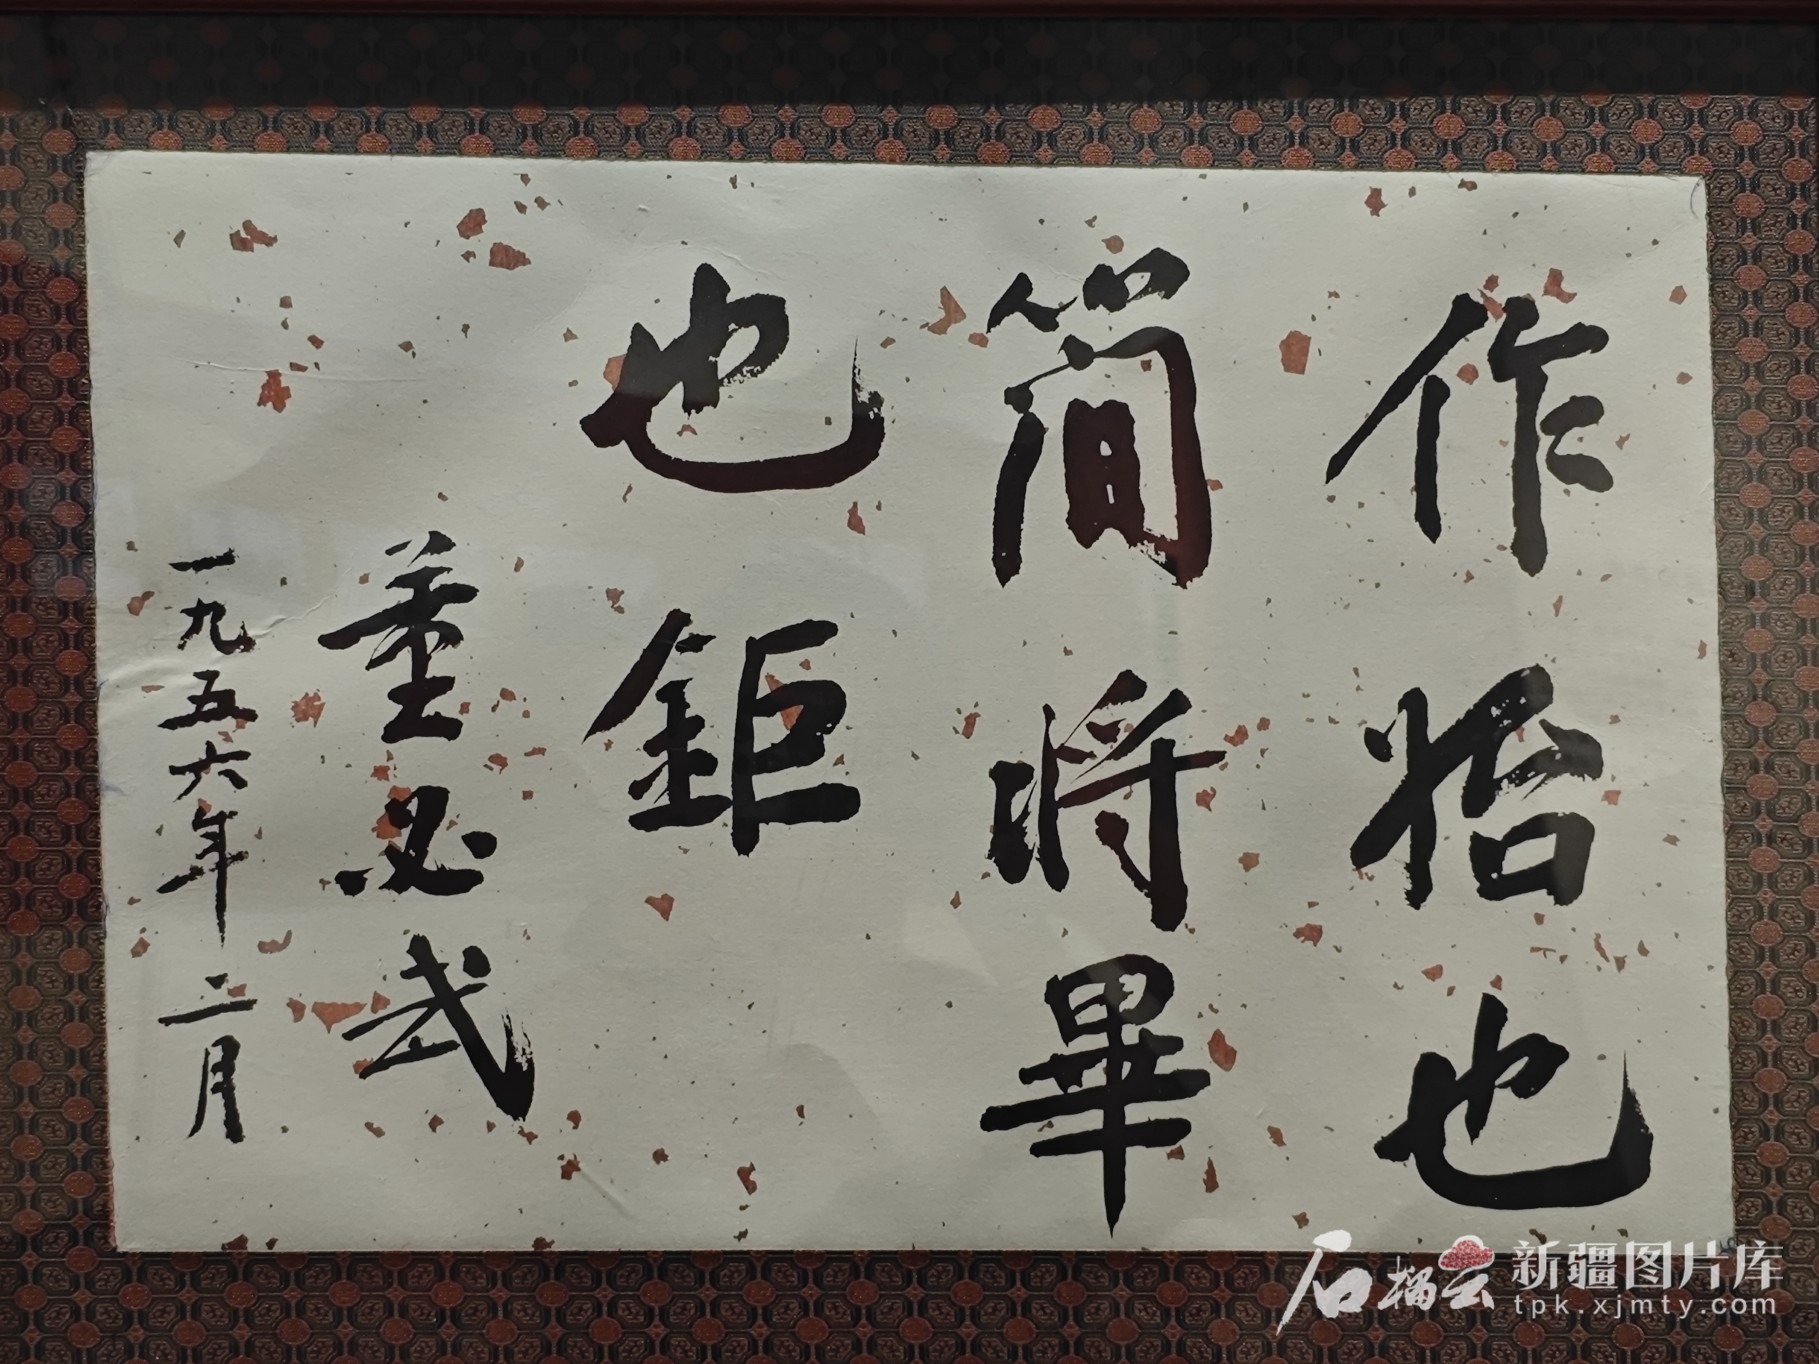 作始也
簡將畢
也鉅
董必武
一九五六年二月
石榴云
新疆图片库
tpk.xjmty.com